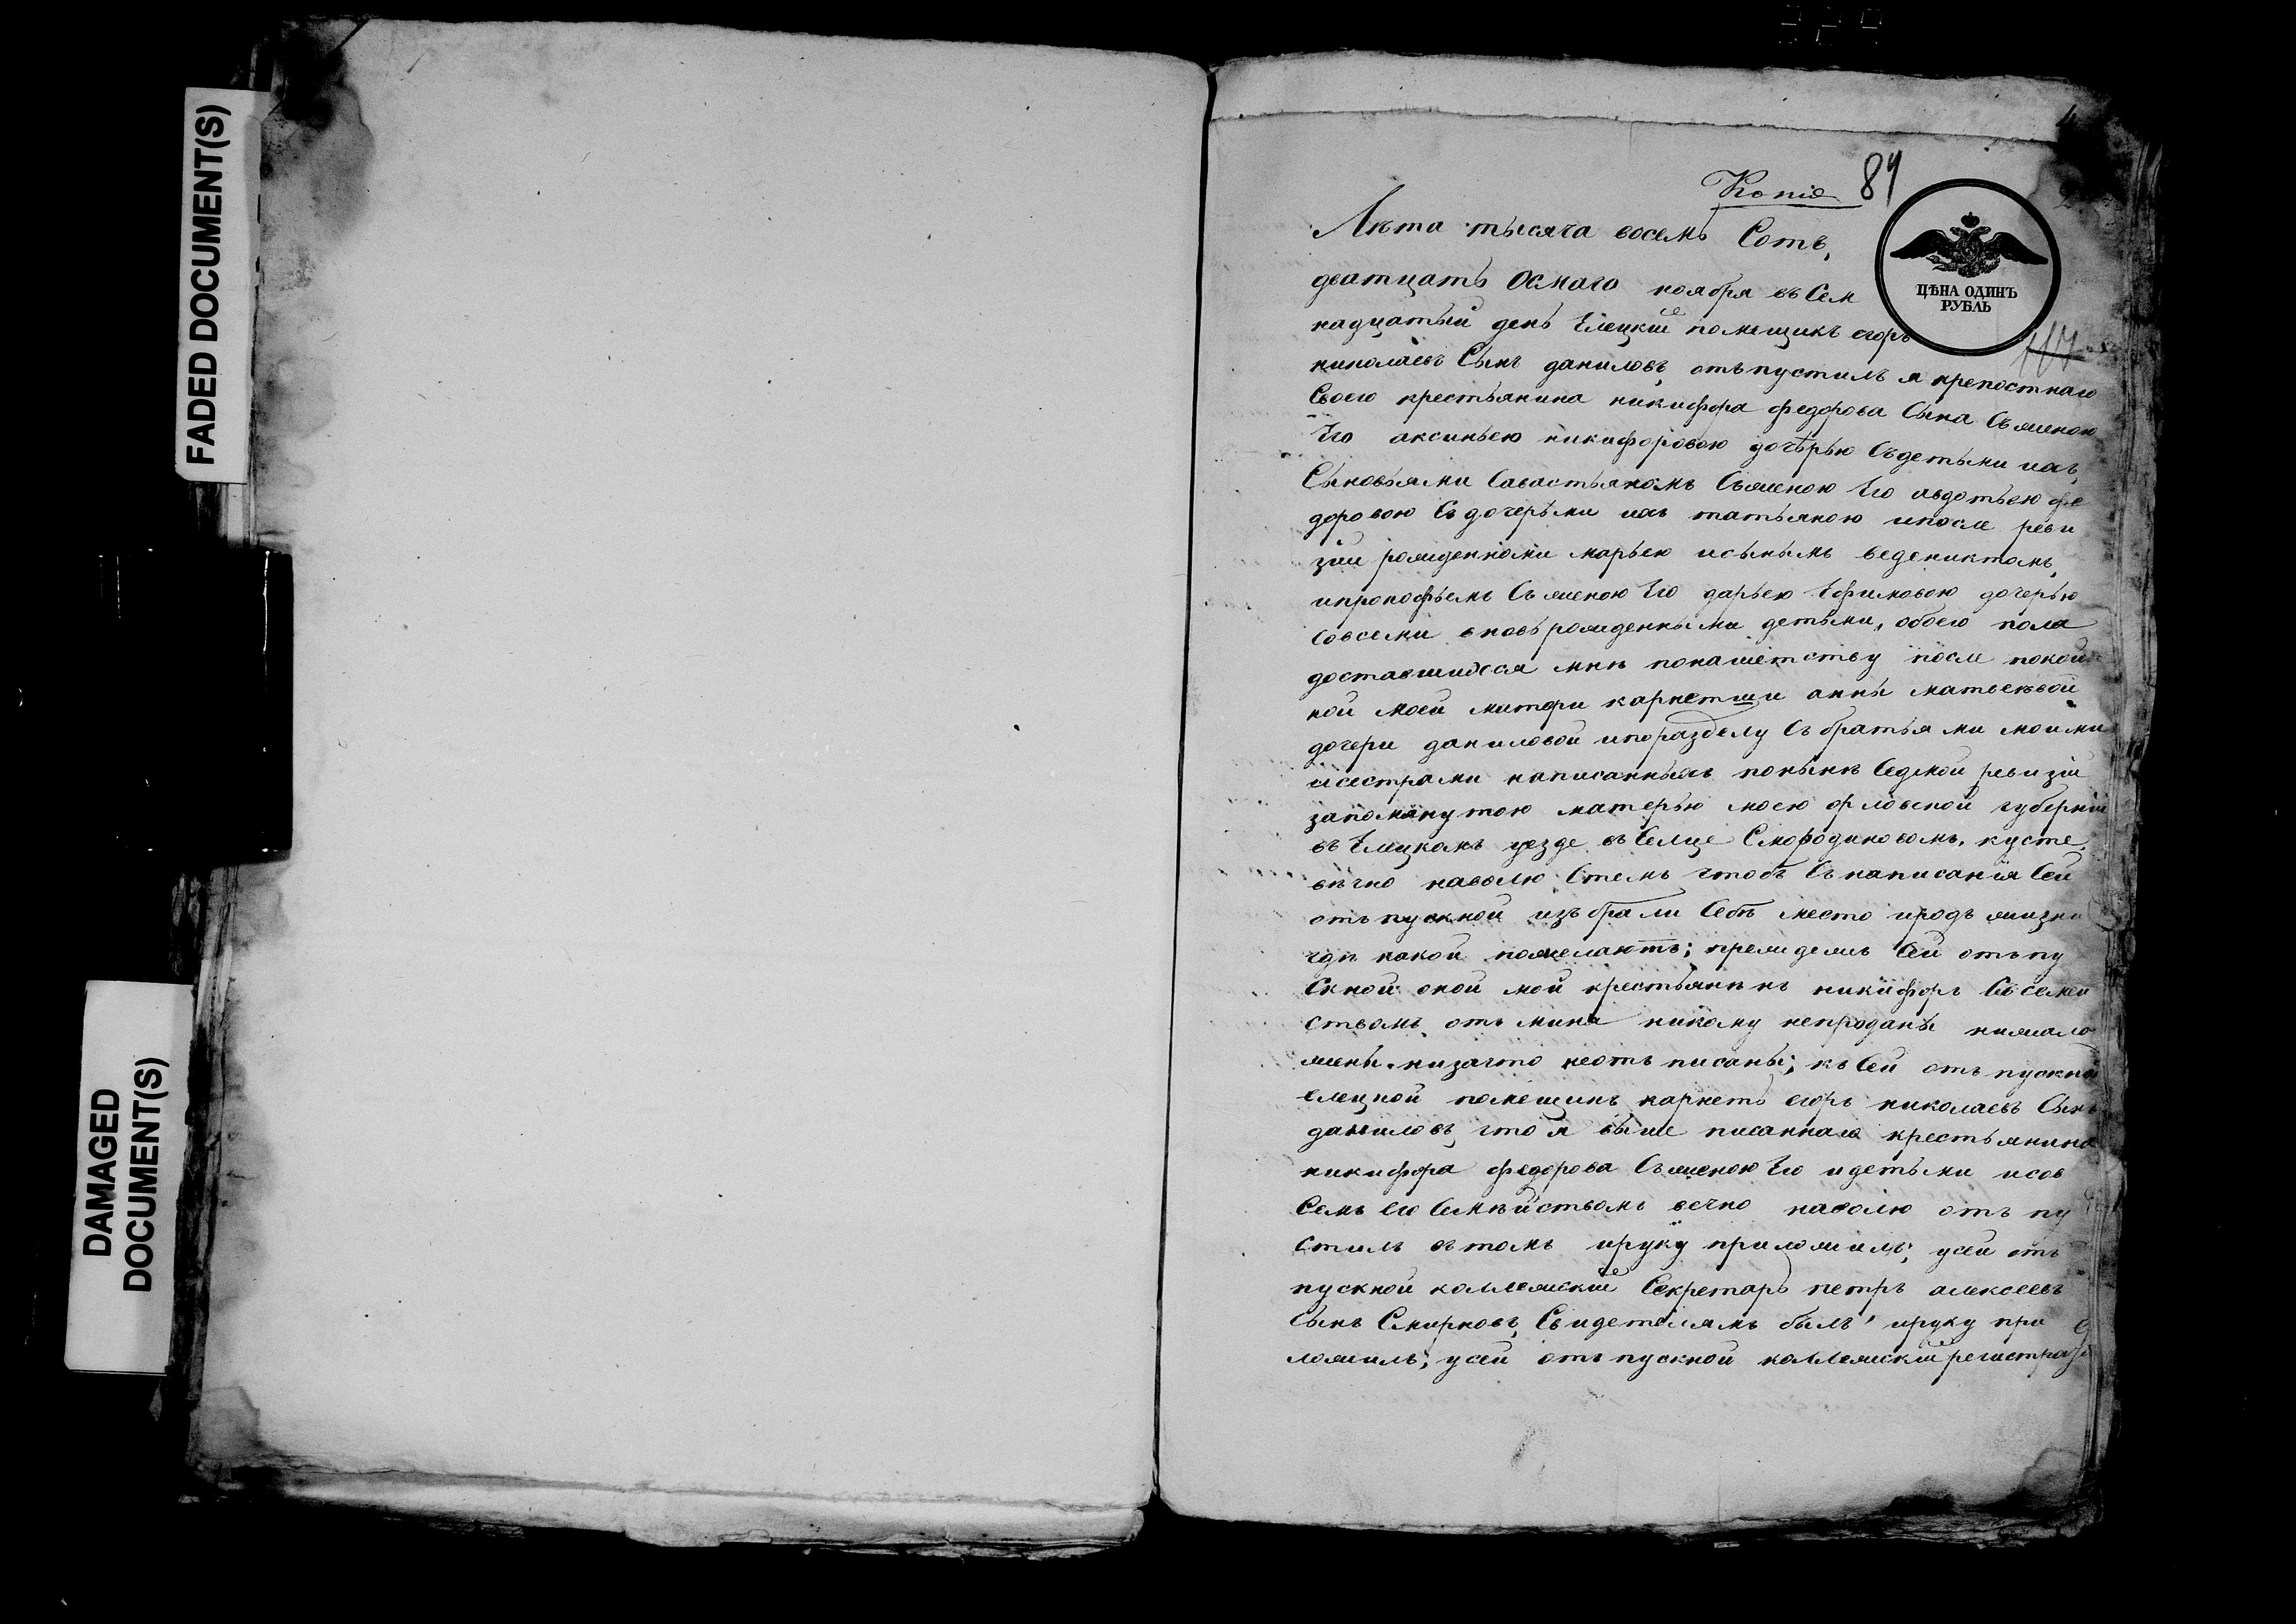 FADED DOCUMENT(S)
DAMAGED
DOCUMENT(S)
Копія 84
ЦѢНА ОДИНЪ
РУБЛЬ
Лѣта тысяча восемь Сотъ,
дватцать Осмаго ноября въ Сем
надцатый день Елецкій помещикъ егоръ
николаевъ Сынъ даниловъ, отъпустилъ я крепостнаго
Своего крестьянина никифора федорова Сына Съженою
Его аксиньею никифоровою дочѣрью Съдетьми ихъ,
Сыновьями Савастьяномъ Съженою Его авдотьею фе
доровою Съ дочерьми ихъ татьяною ипосле реви
зіи рожденными марьею исыномъ ведениктомъ,
ипрокофьемъ Съженою Его дарьею Ефимовою дочерью
Совсеми вновърожденными детьми, обоего пола
доставшихся мнѣ понашетству после покой
ной моей матери карнетши анны матвеевой
дочери даниловой ипоразделу Съ братьями моими
исестрами написанныхъ понынѣ Седмой ревизіи
запомянутою матерью моею орловской губерніи
въ Елецкомъ уезде въ Селце Смородиновомъ, кусте,
вѣчно наволю Стемъ чтобъ Съ написанія Сей
отъпускной избрали Себѣ место иродъ жизни
гдѣ какой пожелаютъ; преждежъ Сей отъпу
Скной оной мой крестьянинъ никифоръ Съ Семей
ствомъ отъ миня никому непроданы низало
жены низачто неотъписаны; къ Сей отъ пускной
елецкой помещикъ карнетъ егоръ николаевъ Сынъ
даниловъ, что я выше писаннаго крестьянина
никифора федорова Съженою Его идетьми исов
Семъ его Семѣйствомъ вечно наволю отъ пу
стилъ втомъ ируку приложилъ; усей отъ
пускной коллежскій Секретарь петръ алексеевъ
Сынъ Смирновъ, Свидетелямъ былъ ируку при
ложилъ; усей отъ пускной коллежскій регистра